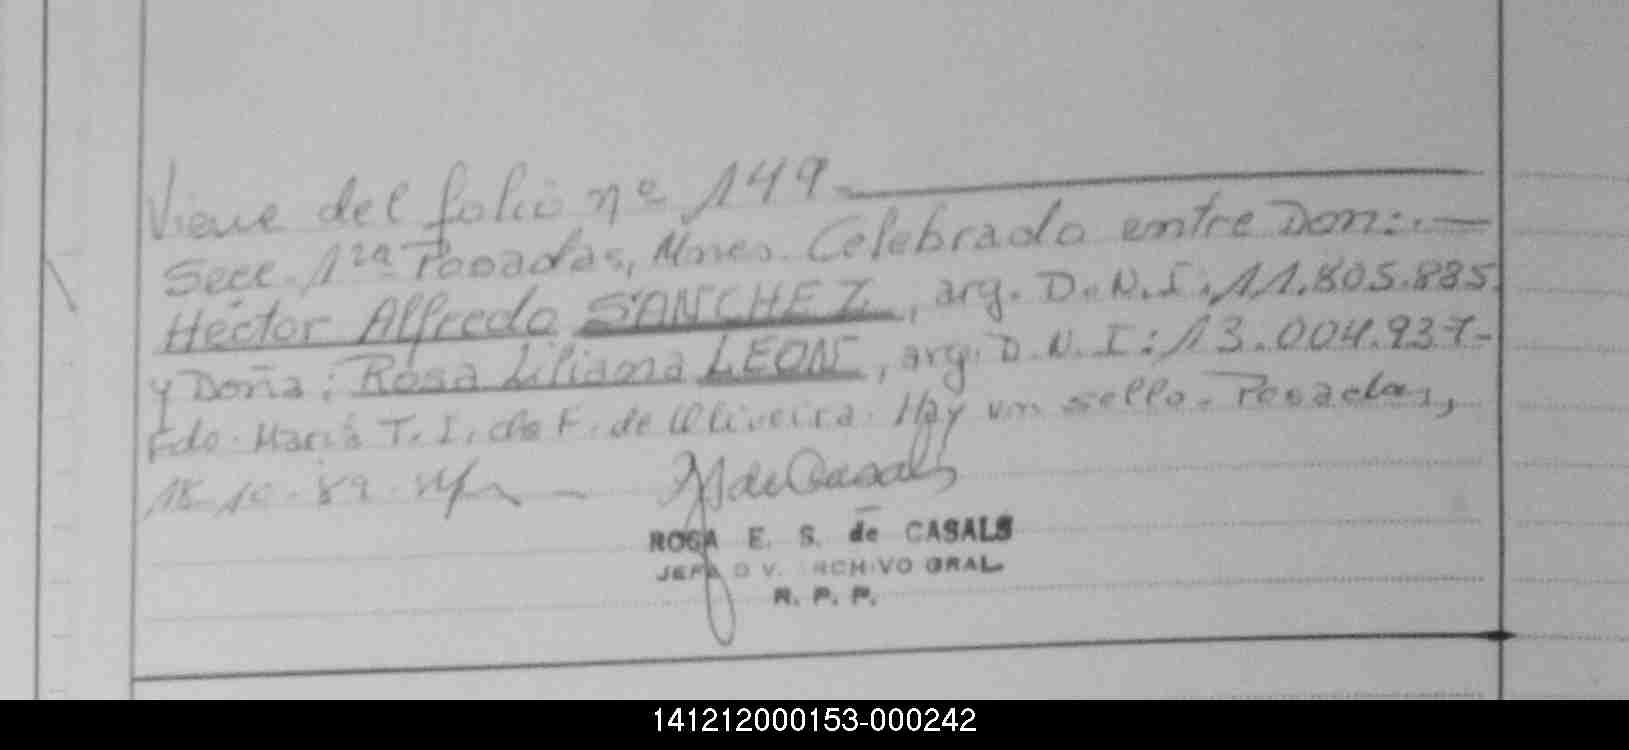 Viene del folio nº 149
Secc. 1ra Posadas, Mnes. Celebrado entre Don:.—
Héctor Alfredo SANCHEZ, arg. D.N.I:11.805.885
y Doña: Rosa Liliana LEON, arg. D.N.I:13.004.937-
Fdo. María T. I. de F. de Oliveira. Hay un sello. Posadas,
18-10-89.
de Casals
ROSA E. S. de CASALS
JEFA DIV. ARCHIVO GRAL.
R. P. P.
141212000153-000242